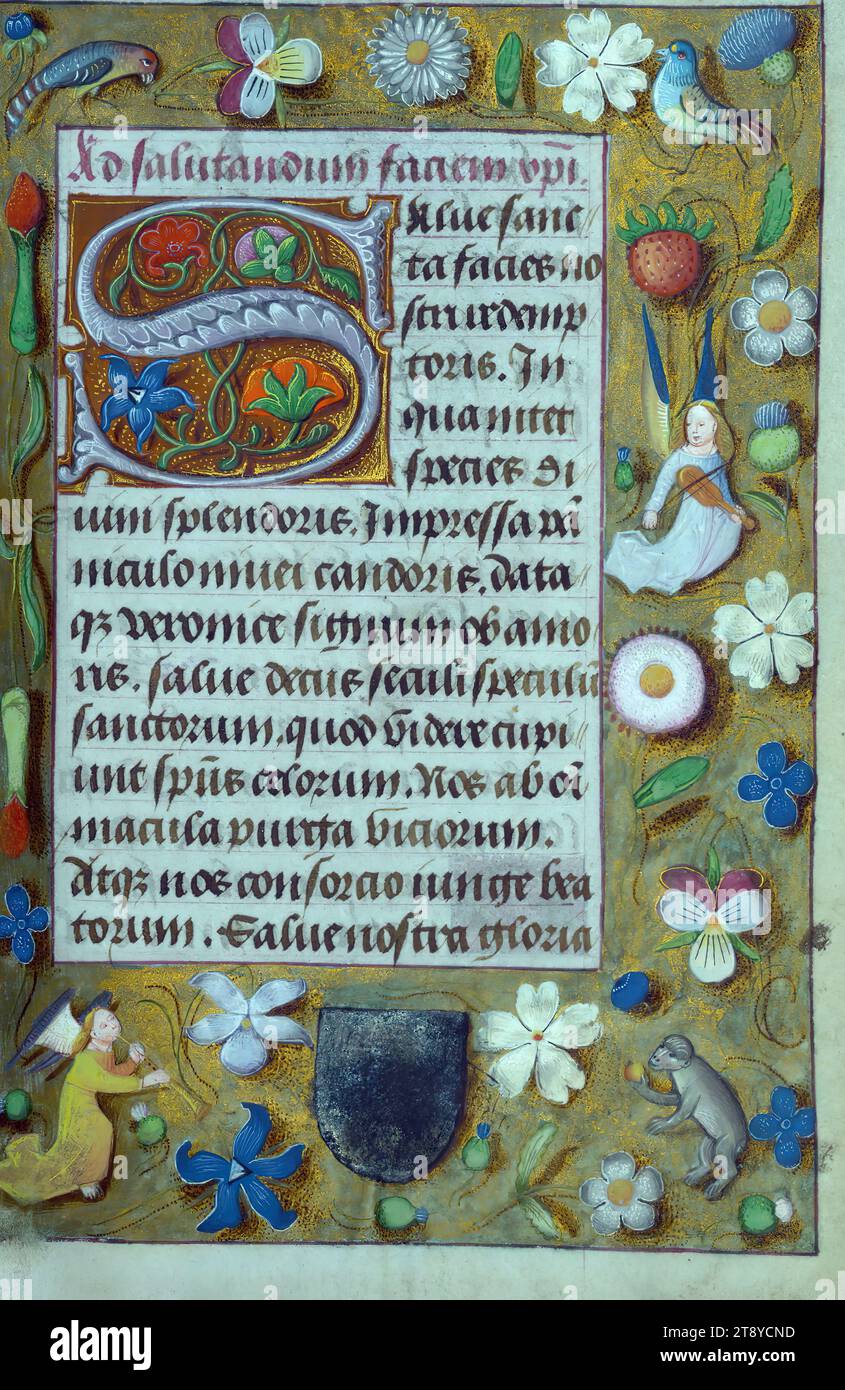 Ad salutandum faciem xpi.
Salue sanc
ta facies no
stri redemp
toris. In
qua nitet
species di
uini splendoris. Impressa pā
niculo niuei candoris. data
qꝫ veronice signum ob amo
ris. salue decus seculi speculū
sanctorum. quod videre cupi
unt spūs celorum. Nos ab oī
macula purga viciorum.
Atqꝫ nos consorcio iunge bea
torum. Salue nostra gloria
alamy
Image ID: 2T8YCND
www.alamy.com